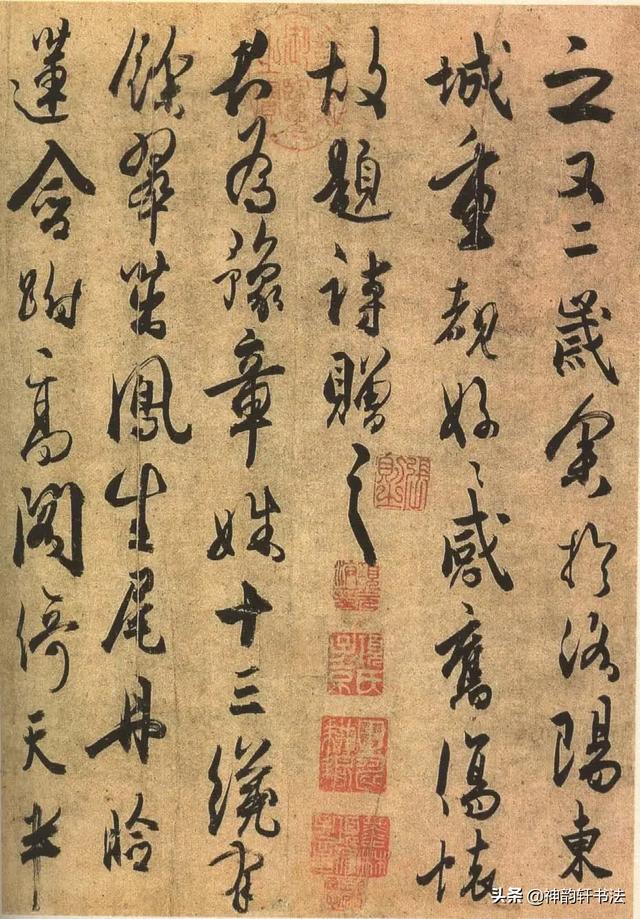 之又二歲余於洛陽東
城重覩好〻感舊傷懷
故題詩贈之
君為豫章姝十三纔有
餘翠茁鳳生尾丹臉
蓮含跗高閣倚天半
头条 @神韵轩书法